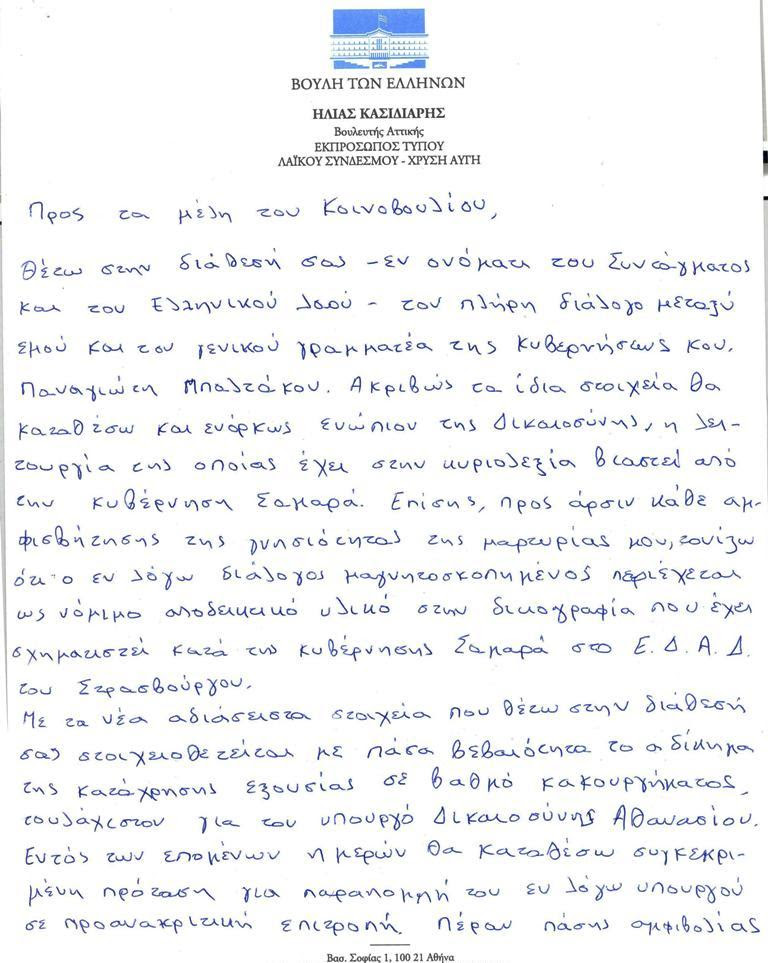 ΒΟΥΛΗ ΤΩΝ ΕΛΛΗΝΩΝ
ΗΛΙΑΣ ΚΑΣΙΔΙΑΡΗΣ
Βουλευτής Αττικής
ΕΚΠΡΟΣΩΠΟΣ ΤΥΠΟΥ
ΛΑΪΚΟΥ ΣΥΝΔΕΣΜΟΥ - ΧΡΥΣΗ ΑΥΓΗ
Προς τα μέλη του Κοινοβουλίου,
Θέτω στην διάθεσή σας – εν ονόματι του Συντάγματος
και του Ελληνικού Λαού – τον πλήρη διάλογο μεταξύ
εμού και του γενικού γραμματέα της κυβερνήσεως κου.
Παναγιώτη Μπαλτάκου. Ακριβώς τα ίδια στοιχεία θα
καταθέσω και ενόρκως ενώπιον της Δικαιοσύνης, η λει-
τουργία της οποίας έχει στην κυριολεξία βιαστεί από
την κυβέρνηση Σαμαρά. Επίσης, προς άρσιν κάθε αμ-
φισβήτησης της γνησιότητας της μαρτυρίας μου, τονίζω
ότι ο εν λόγω διάλογος μαγνητοσκοπημένος περιέχεται
ως νόμιμο αποδεικτικό υλικό στην δικογραφία που έχει
σχηματιστεί κατά της κυβέρνησης Σαμαρά στο Ε.Δ.Α.Δ.
του Στρασβούργου.
Με τα νέα αδιάσειστα στοιχεία που θέτω στην διάθεσή
σας στοιχειοθετείται με πάσα βεβαιότητα το αδίκημα
της κατάχρησης εξουσίας σε βαθμό κακουργήματος,
τουλάχιστον για τον υπουργό Δικαιοσύνης Αθανασίου.
Εντός των επομένων ημερών θα καταθέσω συγκεκρι-
μένη πρόταση για παραπομπή του εν λόγω υπουργού
σε προανακριτική επιτροπή. Πέραν πάσης αμφιβολίας
Βασ. Σοφίας 1, 100 21 Αθήνα